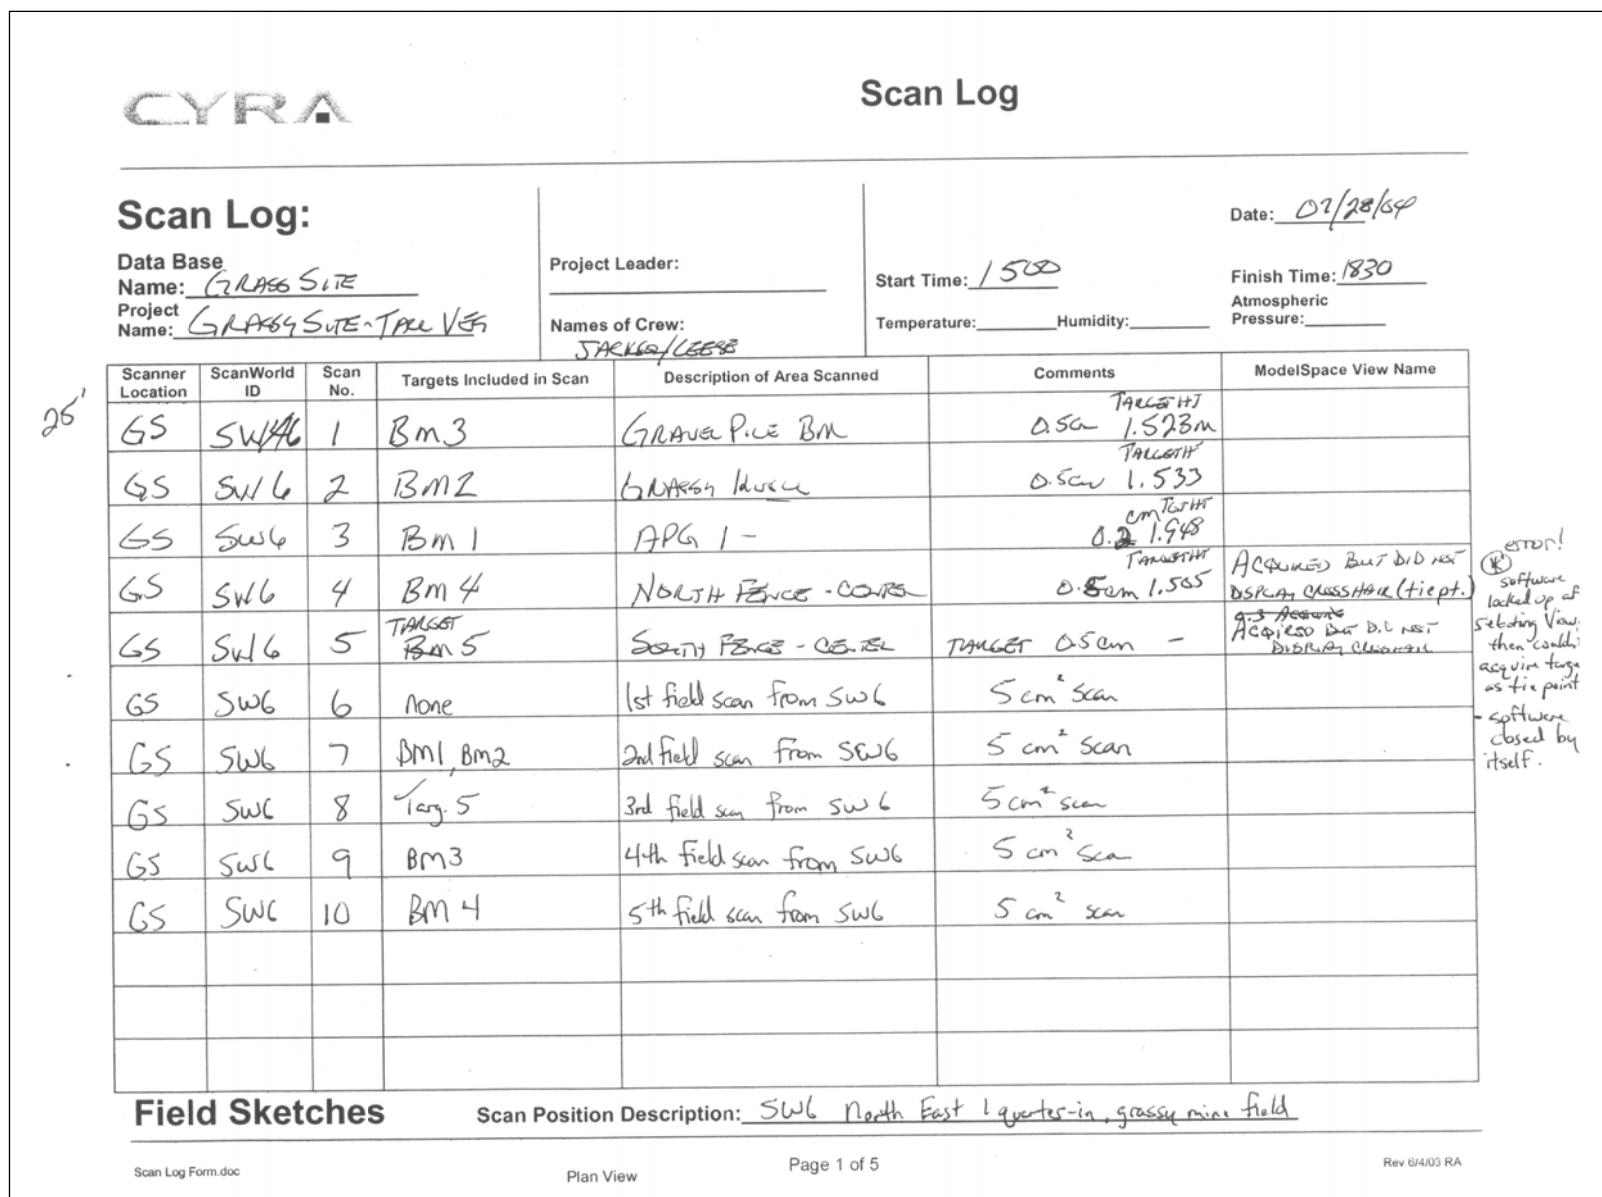 CYRA
Scan Log
Scan Log:
Date: 07/28/04
Data Base
Name: GRASS SITE
Project Leader:
Start Time: 1500
Finish Time: 1830
Project
Name: GRASSY SITE-TALL VEG
Names of Crew:
JACKSO/LEESE
Temperature: Humidity:
Atmospheric
Pressure:
Scanner Location ScanWorld ID Scan No. Targets Included in Scan Description of Area Scanned Comments ModelSpace View Name
25'
GS SW6 1 BM3 GRAVEL PILE BM 0.5cm TARGET HT 1.523m
GS SW6 2 BM2 GRASSY 0.5cm TARGET HT 1.533
GS SW6 3 BM1 APG 1 - 0.2 cm TGT HT 1.948
GS SW6 4 BM4 NORTH FENCE - CENTER 0.5cm TARGET HT 1.505 ACQUIRED BUT DID NOT DISPLAY CROSSHAIR (tie pt.)
GS SW6 5 TARGET 5 SOUTH FENCE - CENTER TARGET 0.5cm - ACQIRED BUT DID NOT DISPLAY CROSSHAIR
GS SW6 6 None 1st field scan from SW6 5 cm² scan
GS SW6 7 BM1, BM2 2nd field scan from SW6 5 cm² scan
GS SW6 8 Targ. 5 3rd field scan from SW6 5 cm² scan
GS SW6 9 BM3 4th field scan from SW6 5 cm² scan
GS SW6 10 BM4 5th field scan from SW6 5 cm² scan
error!
software
locked up
selecting View,
then
acquire
as tie point
- software
closed by
itself.
Field Sketches
Scan Position Description: SW6 North East 1 quarter-in, grassy mine field
Scan Log Form.doc
Plan View
Page 1 of 5
Rev 6/4/03 RA